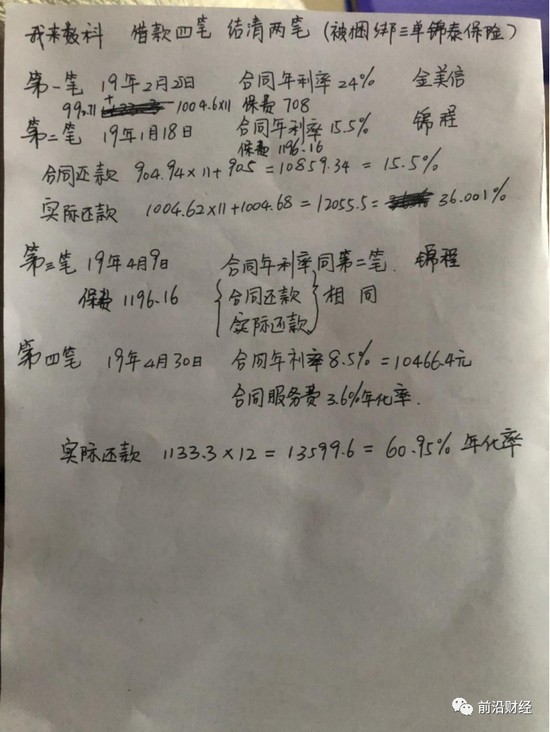 我来数科 借款四笔 结清两笔(被捆绑三单锦泰保险)
第一笔 19年2月28日 合同年利率24% 金美信
+ 1004.6x11 保费 708
第二笔 19年1月18日 合同年利率15.5% 锦程
保费 1196.16
合同还款 904.94x11+905=10859.34=15.5%
实际还款 1004.62x11+1004.68=12055.5= 36.001%
第三笔 19年4月9日 合同年利率同第二笔. 锦程
保费 1196.16 {合同还款 实际还款} 相同
第四笔 19年4月30日 合同年利率8.5%=10466.4元
合同服务费 3.6%年化率.
实际还款 1133.3x12=13599.6=60.95%年化率
前沿财经